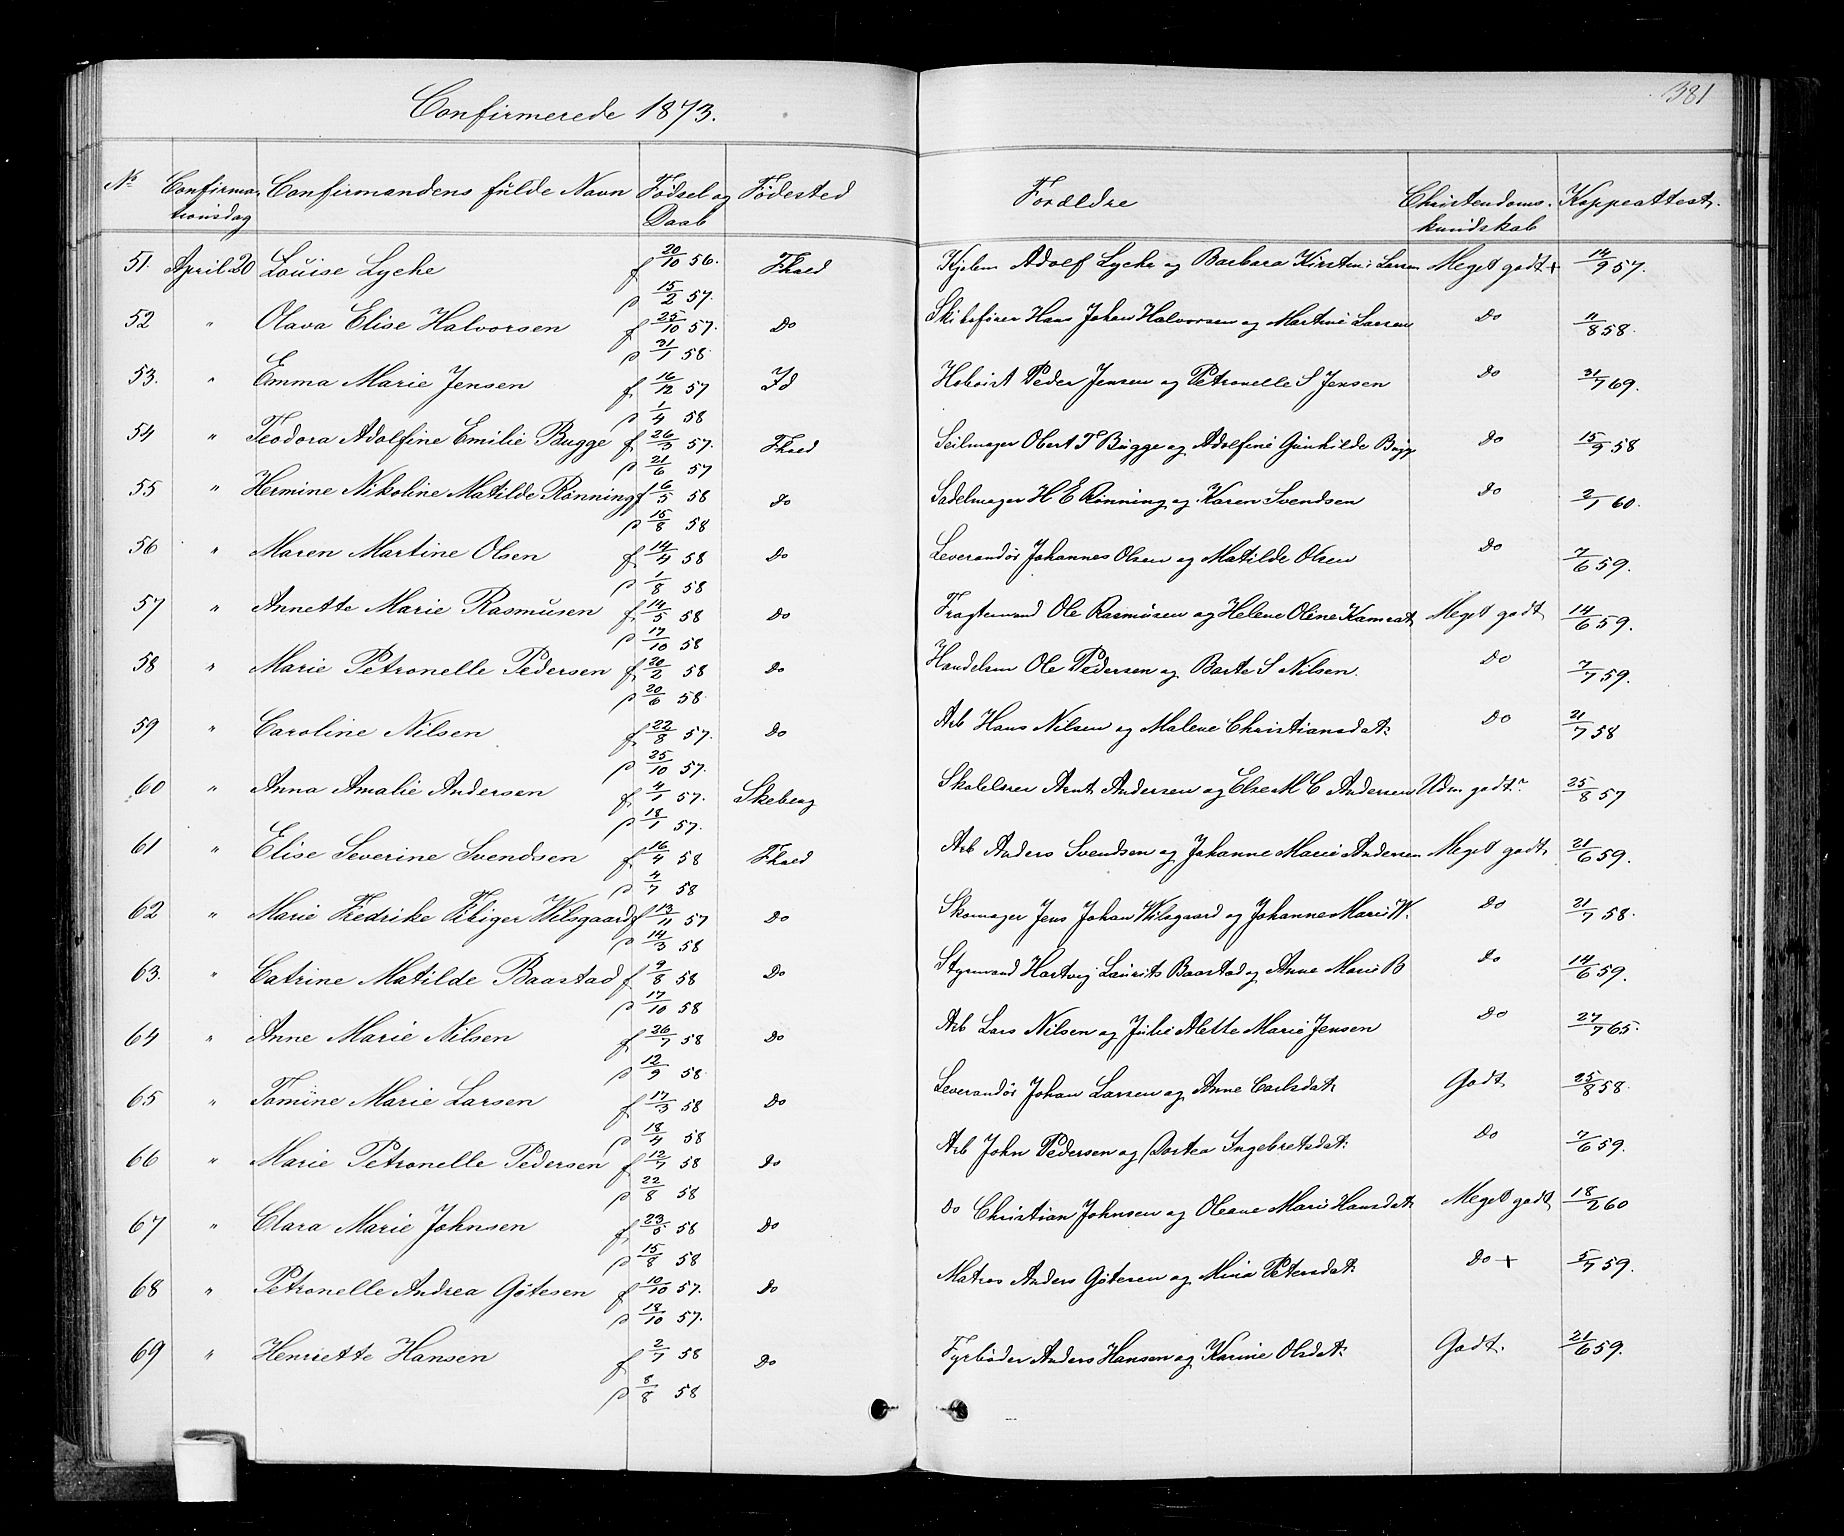 Confirmerede 1873.
381
No Confirma- Confirmandens fulde Navn Fødsel og Fødested Forældre Christendoms- Koppeattest.
tionsdag Daab kundskab
51. April 20 Louise Lyche f 20/10 56. Fhald Adolf Lyche og Barbara Kirstine Larsen Meget godt + 14/9 57.
p 15/2 57.
52 " Olava Elise Halvorsen f 25/10 57. Do Skibsfører Hans Johan Halvorsen og Martine Larsen Do 11/8 58.
p 31/1 58.
53. " Emma Marie Jensen f 16/12 57 Id Hoboist Peder Jensen og Petronelle S Jensen Do 31/7 69.
p 1/4 58
54 " Teodora Adolfine Emilie Bugge f 26/3 57. Fhald Seilmager Obert T Bugge og Adolfine Gunhilde Bugge Do 15/9 58
p 21/6 57
55 " Hermine Nikoline Matilde Rønning f 6/5 58 do Sadelmager H E Rønning og Karen Svendsen Do 2/1 60.
p 15/8 58
56 " Maren Martine Olsen f 14/4 58 Do Leverandør Johannes Olsen og Matilde Olsen Do 7/6 59.
p 1/8 58
57 " Annette Marie Rasmusen f 14/5 58 Do Fragtemand Ole Rasmusen og Helene Oline Kamrat Meget godt 14/6 59.
p 17/10 58
58 " Marie Petronelle Pedersen f 20/2 58 Do Handelsm Ole Pedersen og Barte S Nilsen. Do 7/7 59.
p 20/6 58.
59 " Caroline Nilsen f 22/8 57. Do Arb Hans Nilsen og Malene Christiansdat: Do 21/7 58
p 25/10 57.
60 " Anna Amalie Andersen f 4/1 57. Skeberg Skolelærer Arnt Andersen og Else M C Andersen Udm godt. 25/8 57
p 18/1 57.
61 " Elise Severine Svendsen f 16/4 58 Fhald Arb Anders Svendsen og Johanne Marie Andersen Meget godt 21/6 59.
p 4/7 58
62 " Marie Fredrike Fibiger Wilsgaard f 13/11 57 Do Skomager Jens Johan Wilsgaard og Johanne Marie W. Do 21/7 58.
p 14/3 58
63. " Catrine Matilde Baastad f 9/8 58 Do Styrmand Hartvig Laurits Baastad og Anne Marie B Do 14/6 59.
p 17/10 58
64 " Anne Marie Nilsen f 26/7 58 Do Arb Lars Nilsen og Julie Mette Marie Jensen Do 27/7 65.
p 12/9 58.
65 " Tomine Marie Larsen f 17/3 58 Do Leverandør Johan Larsen og Anne Carlsdat: Godt 25/8 58.
p 18/4 58
66 " Marie Petronelle Pedersen f 12/7 58 Do Arb John Pedersen og Dortea Ingebretsdat: Do 7/6 59.
p 22/8 58
67 " Clara Marie Johnsen f 23/5 58 Do Do Christian Johnsen og Oleane Marie Hansdat: Meget godt 18/2 60
p 15/8 58
68 " Petronelle Andrea Götesen f 10/10 57. Do Matros Anders Götesen og Mina Petersdat: Do + 5/7 59.
p 18/10 57.
69 " Henriette Hansen f 2/7 58 Do Fyrbøder Anders Hansen og Karine Olsdat: Godt. 21/6 59.
p 8/8 58